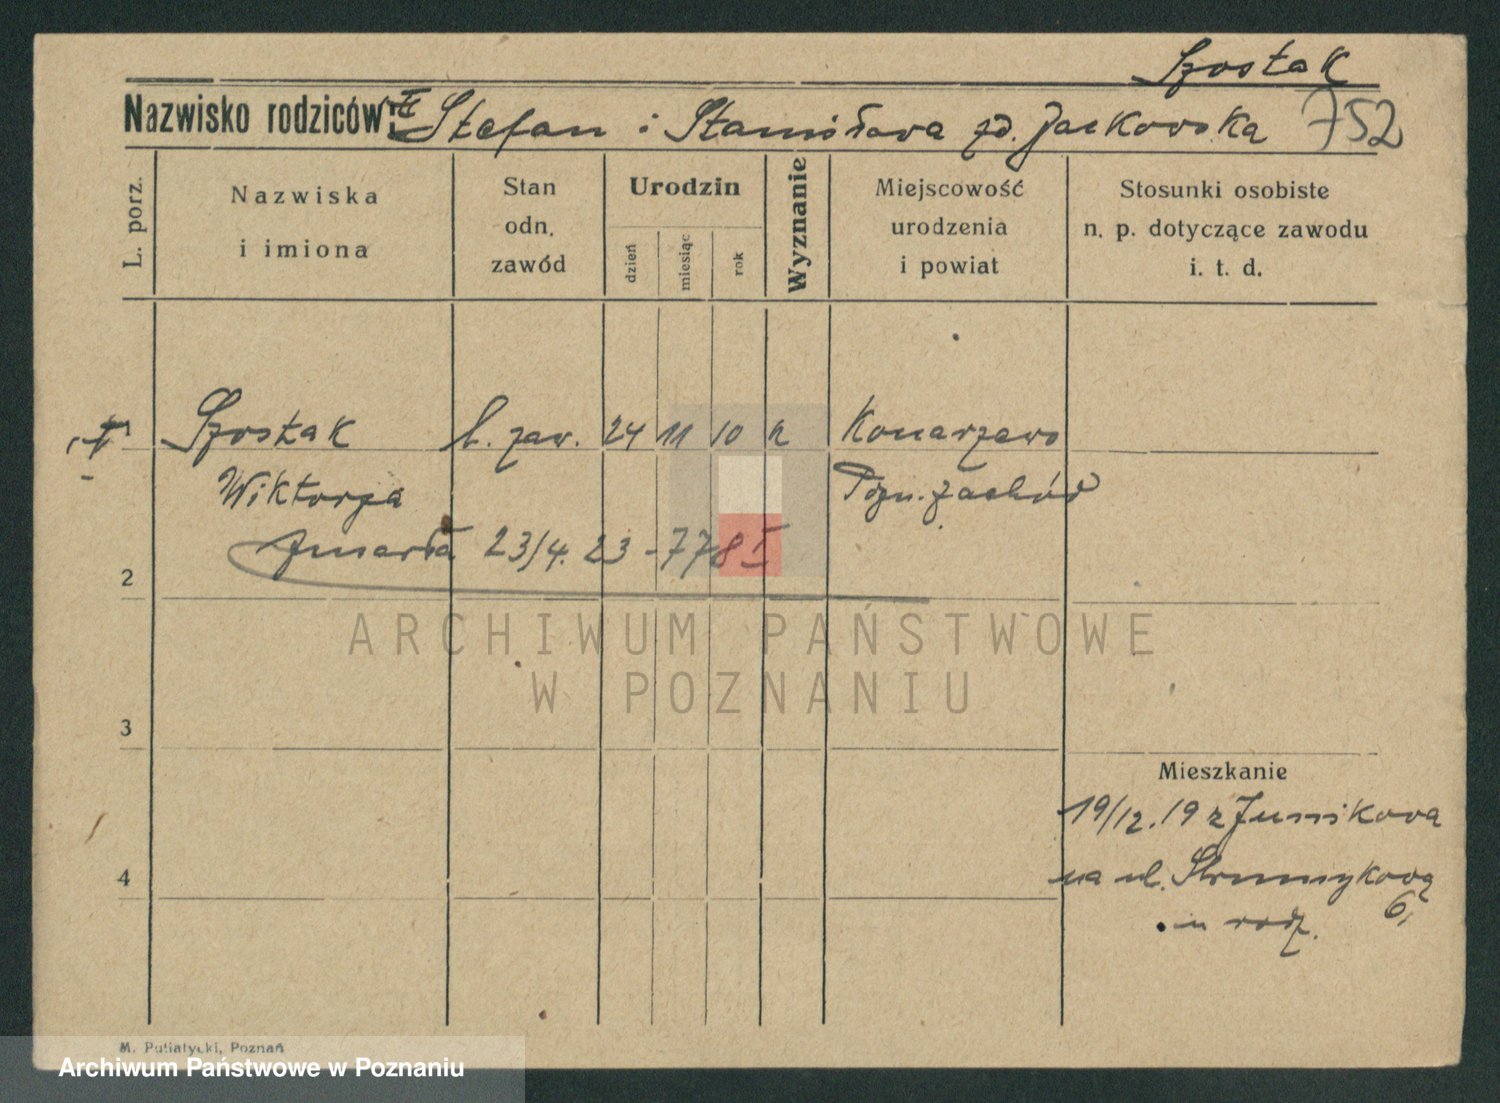 Szostak
Nazwisko rodziców: Stefan i Stanisława zd. Jackowska 752
L. porz.
Nazwiska
i imiona
Stan
odn.
zawód
Urodzin
dzień
miesiąc
rok
Wyznanie
Miejscowość
urodzenia
i powiat
Stosunki osobiste
n. p. dotyczące zawodu
i. t. d.
1 Szostak b. zaw. 24 11 10 k Konarzewo
Wiktorja Pozn. Zachód
zmarła 23/4. 23 - 778 I
2
ARCHIWUM PAŃSTWOWE
W POZNANIU
3
Mieszkanie
19/12. 19 z Junikowa
4
na ul. Strumykową
6,
u rodz.
M. Putiatycki, Poznań
Archiwum Państwowe w Poznaniu